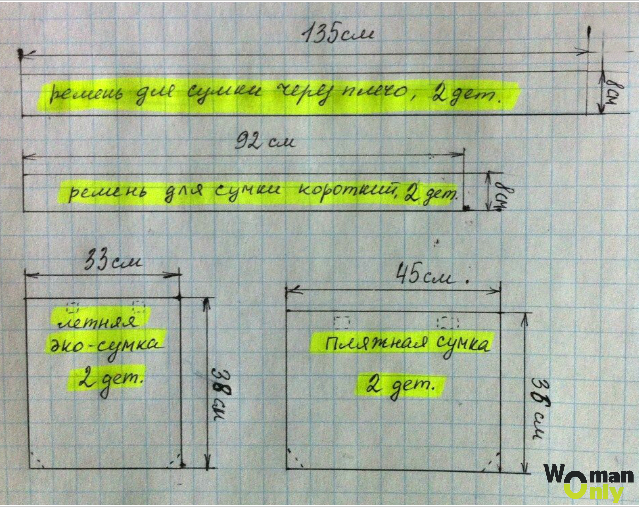 135см
ремень для сумки через плечо, 2 дет.
8см
92 см
ремень для сумки короткий, 2 дет.
8см
33см
45см.
летняя
эко-сумка
2 дет.
38 см
пляжная сумка
2 дет.
38 см
Woman
Only